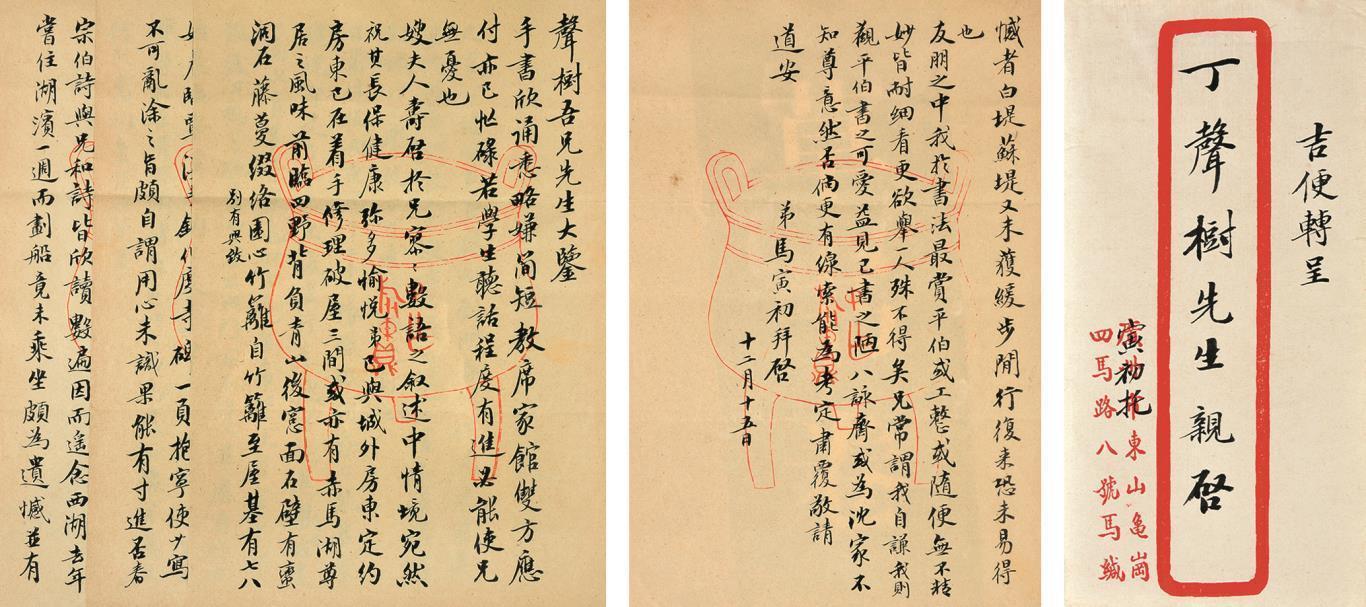 聲樹吾兄先生大鑒
手書欣誦悉略嫌簡短教席家館雙方應
付亦已忙碌若學生聽話程度有進必能使兄
無憂也
嫂夫人壽啓於兄寥〻數語之叙述中情境宛然
祝其長保健康弥多愉悦弟已與城外房東定約
房東已在着手修理破屋三間或亦有赤馬湖尊
居之風味前臨四野背負青山後窻面石壁有蛮
洞石藤蔓缀络園心竹籬自竹籬至屋基有七八
别有興致
一頁抱寧使少寫
不可亂涂之旨頗自謂用心未識果能有寸進否春
宗伯詩與兄和詩皆欣讀數遍因而遥念西湖去年
嘗住湖濱一週而劃船竟未乘坐頗為遺憾並有
憾者白堤蘇堤又未獲緩步閒行復来恐未易得
也
友朋之中我於書法最賞平伯或工整或隨便無不精
妙皆耐細看更欲舉一人殊不得矣兄常謂我自謙我則
觀平伯書之可愛益見己書之陋八詠齋或為沈家不
知尊意然否倘更有線索能為考定肅覆敬請
道安
弟馬寅初拜啓
十二月十五日
吉便轉呈
丁聲樹先生親啓
寅初托
東山龜崗
四馬路八號馬緘